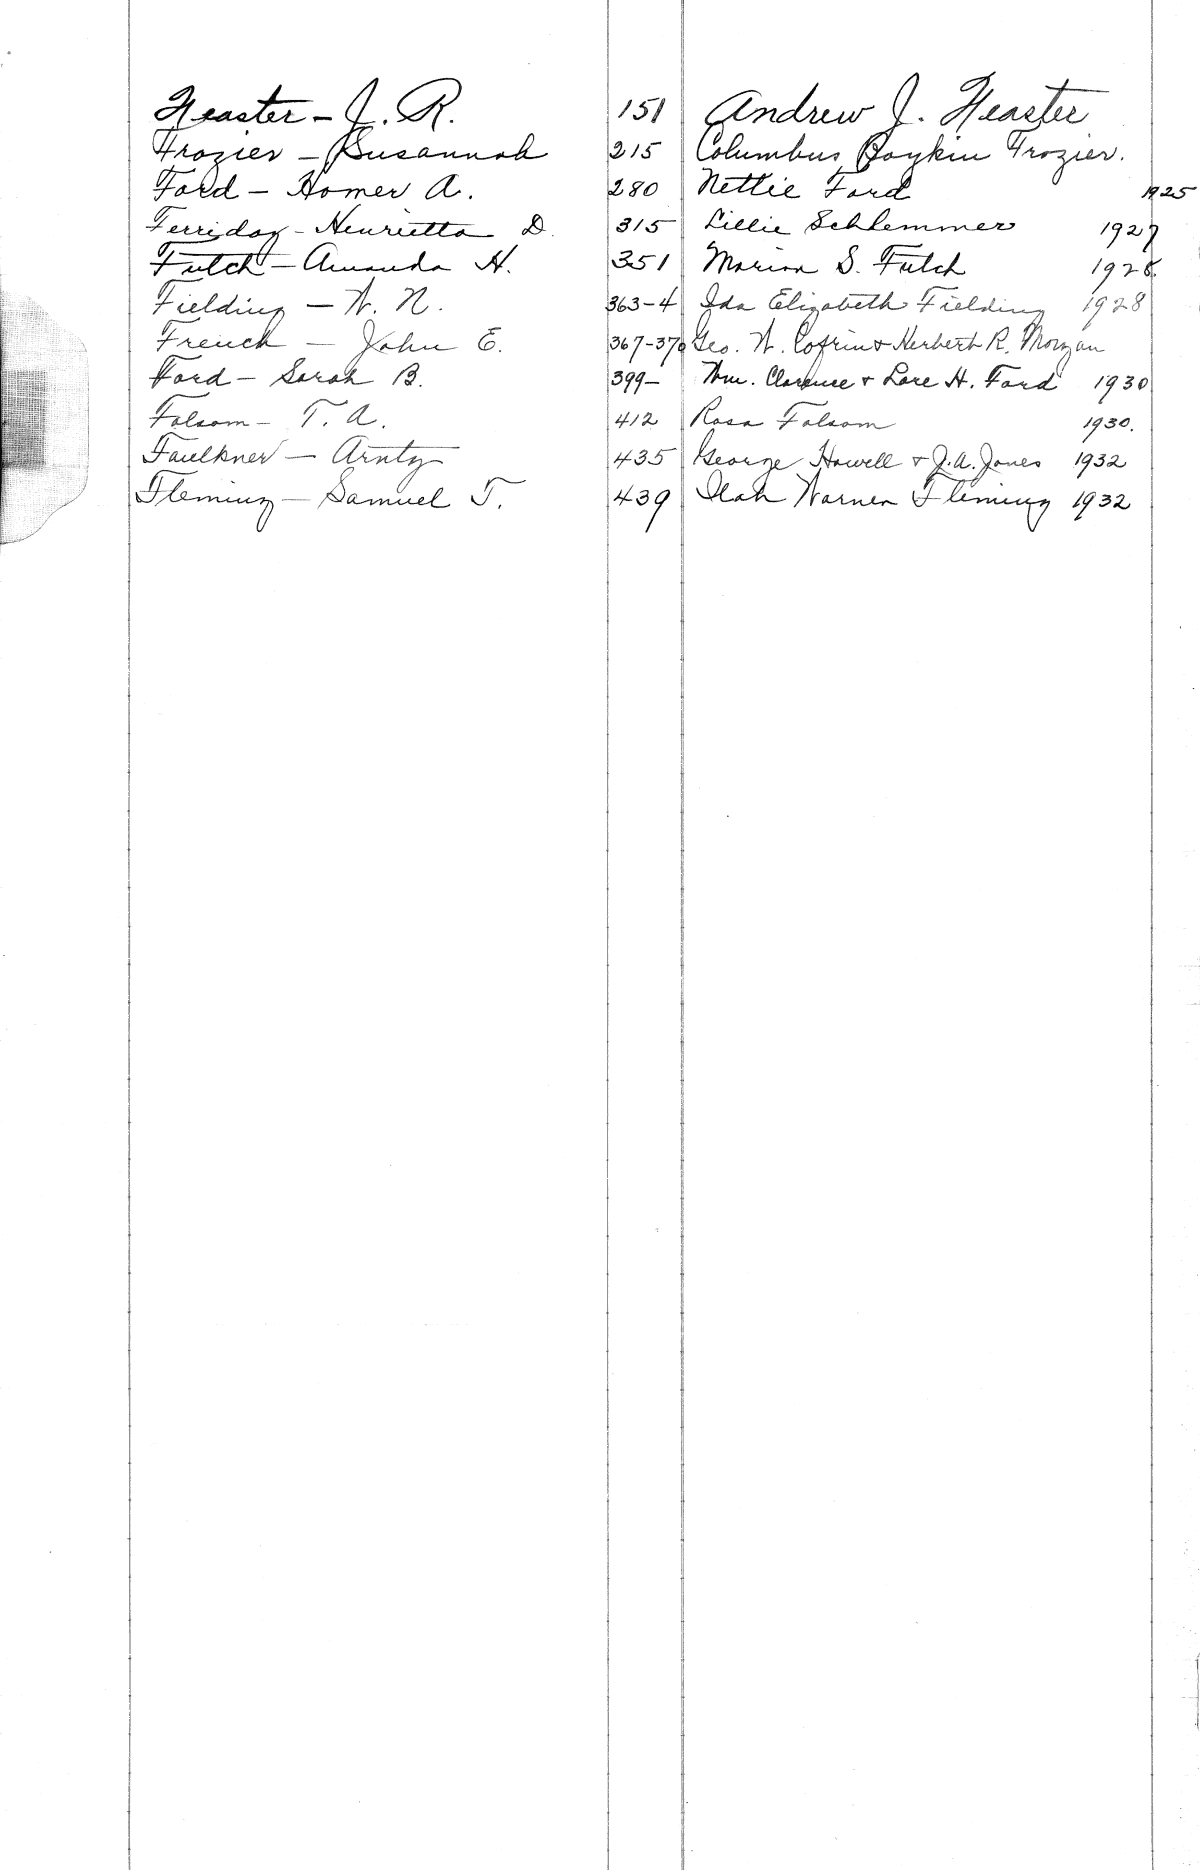 Feaster - J. R. 151 Andrew J. Feaster
Frozier - Susannah 215 Columbus Boykin Frozier.
Ford - Homer A. 280 Nettie Ford 1925
Ferriday - Henrietta D. 315 Lillie Schlemmer 1927
Futch - Amanda H. 351 Marion S. Futch 1928
Fielding - W. N. 363-4 Ida Elizabeth Fielding 1928
French - John E. 367-370 Geo. W. Cofrin & Herbert R. Morgan
Ford - Sarah B. 399- Wm. Clarence & Lore H. Ford 1930
Folsom - T. A. 412 Rosa Folsom 1930.
Faulkner - Arnty 435 George Howell & J.A. Jones 1932
Fleming - Samuel T. 439 Ilah Warner Fleming 1932